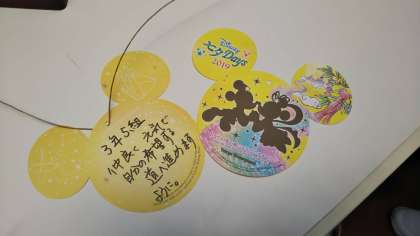 3年5組
仲良く 元気で
自分の希望する
道へ進めます
ように。
Disney
七夕Days
2019